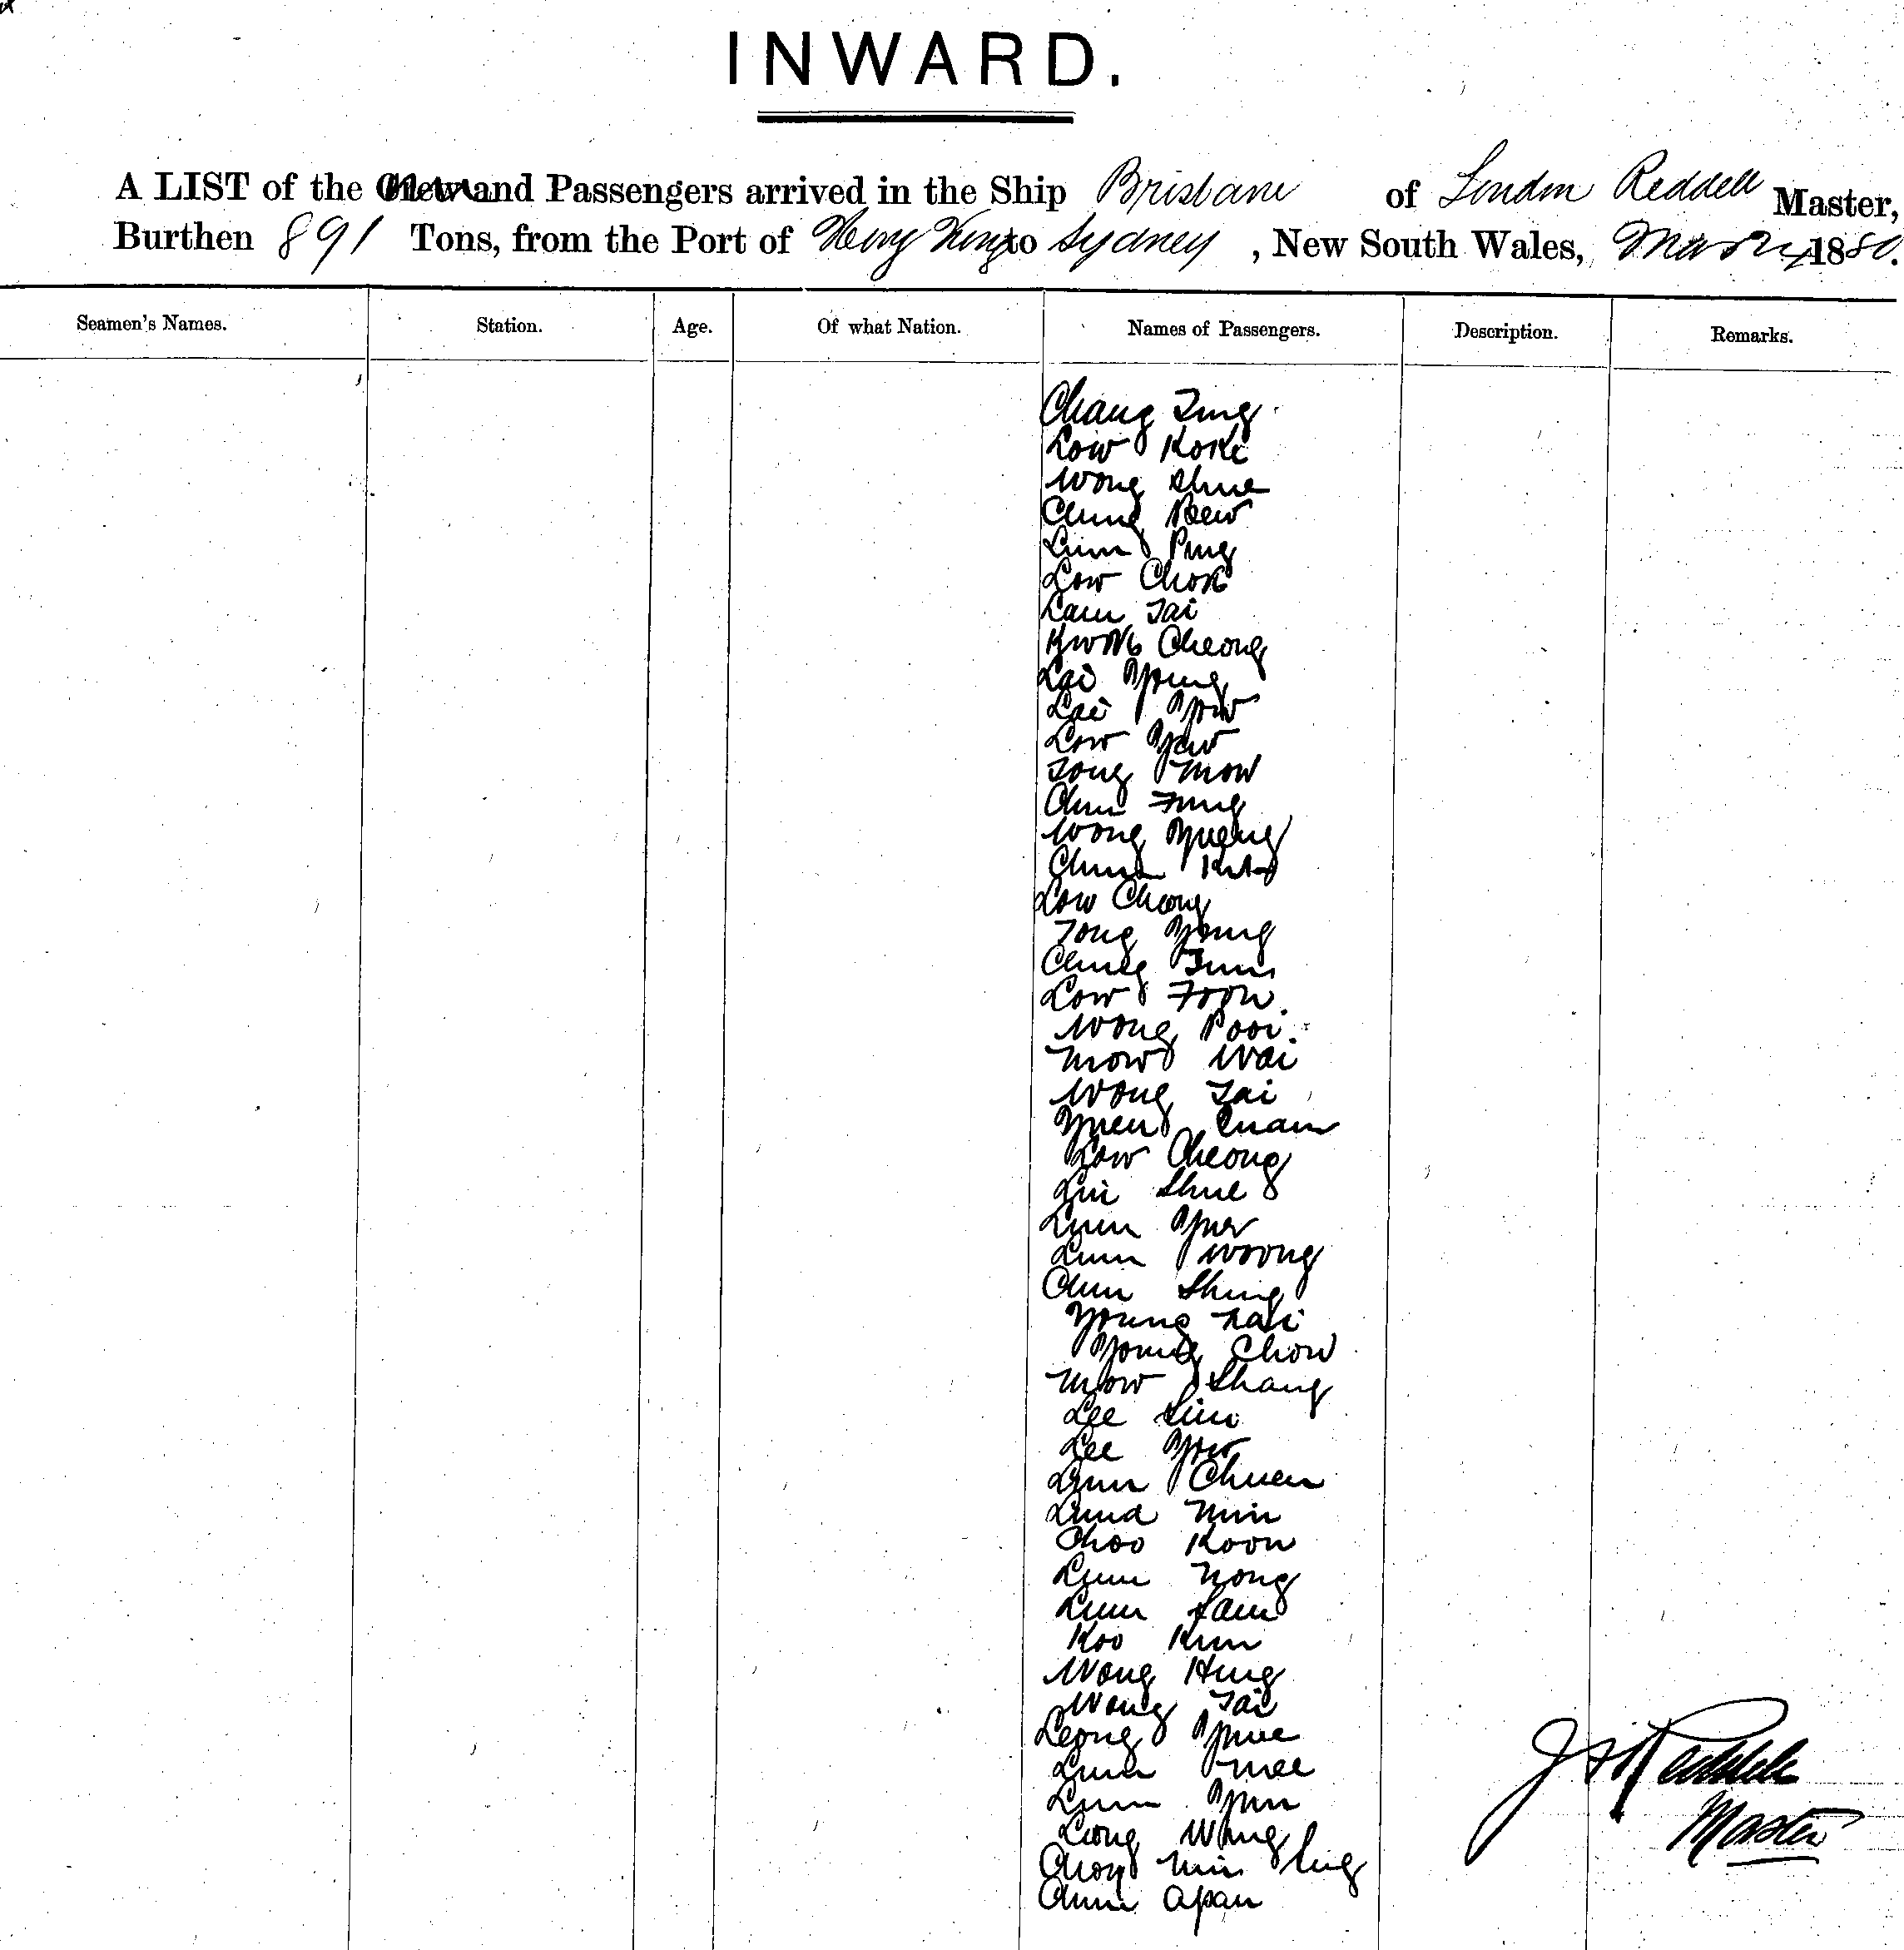 INWARD.
A LIST of the Crew and Passengers arrived in the Ship Brisbane of London Reddell Master,
Burthen 891 Tons, from the Port of Hong Kong to Sydney, New South Wales, 1880.
Seamen's Names. Station. Age. Of what Nation. Names of Passengers. Description. Remarks.
Chang
Low Koke
Wong Shue
Chung
Lum Ping
Low Chok
Lam Tai
Kwong Cheong
Lai Young
Lai Yow
Low Yew
Tong Mow
Chun Fung
Wong
Chun
Low Chong
Tong Young
Chung
Low Foon
Wong Pooi
Mow Wai
Wong Tai
Yuen Quan
Low Cheong
Lui Shue
Lum
Lum Woong
Chun Shing
Young
Young Chow
Mow Shang
Lee Sim
Lee Yow
Lum Chuen
Min
Choo Koon
Lum Nong
Lum Sam
Koo Kum
Wong Hing
Wong Tai
Leong Yuee
Lum
Lum
Leong Wing
Choy Min
Chun Apan
Reddell
Master